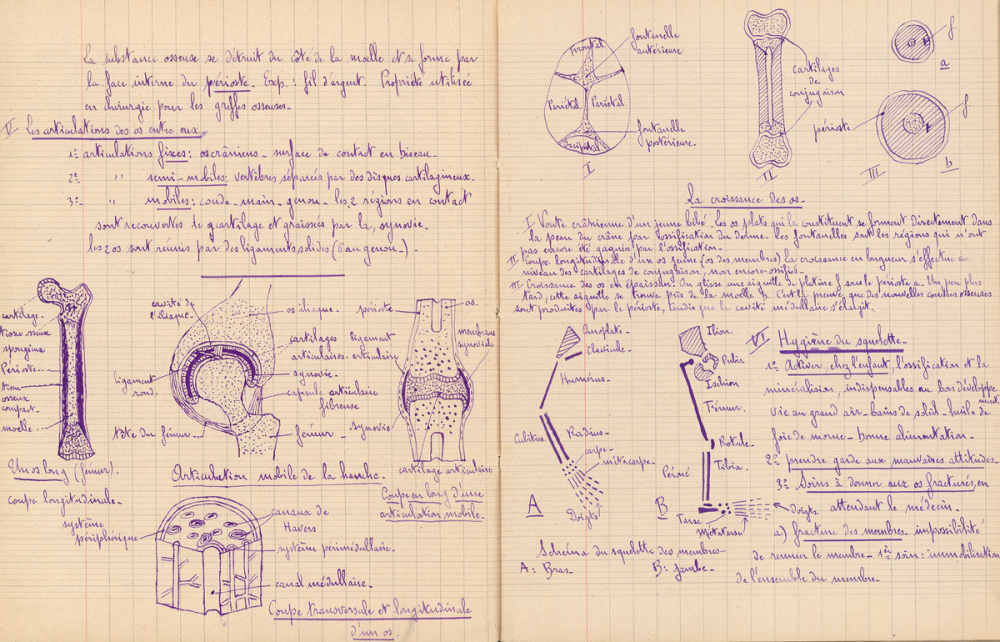 La substance osseuse se détruit du côté de la moelle et se forme par
la face interne du périoste. Exp. : fil d'argent. Propriété utilisée
en chirurgie pour les greffes osseuses.
V Les articulations des os entre eux.
1º articulations fixes : os crâniens - surface de contact en biseau.
2º " semi-mobiles : vertèbres séparées par des disques cartilagineux.
3º " mobiles : coude - main - genou - les 2 régions en contact
sont recouvertes de cartilage et graissées par la synovie.
les 2 os sont réunis par des ligaments solides (6 au genou).
cartilage
tissu osseux
spongieux
Périoste
tissu
osseux
compact.
moelle
Un os long (fémur).
coupe longitudinale.
cavité de
l'iliaque.
os iliaque.
cartilages
articulaires
synovie.
capsule articulaire
fibreuse
ligament
rond.
tête du fémur.
fémur
Articulation mobile de la hanche.
périoste
os.
ligament
articulaire
membrane
synoviale
synovie
cartilage articulaire
Coupe en long d'une
articulation mobile.
système
périphérique
canaux de
Havers
système périmédullaire.
canal médullaire.
Coupe transversale et longitudinale
d'un os.
frontal
fontanelle
antérieure
Pariétal
Pariétal
fontanelle
postérieure.
Occipital
I
cartilages
de
conjugaison
II
f.
a
périoste
f
III
b
La croissance des os.
I Voute crânienne d'un jeune bébé. Les os plats qui la constituent se forment directement dans
la peau du crâne par ossification du derme. les fontanelles sont les régions qui n'ont
pas encore été gagnées par l'ossification.
II Coupe longitudinale d'un os jeune (os des membres) la croissance en longueur s'effectue au
niveau des cartilages de conjugaison, non encore ossifiés.
III Croissance des os en épaisseur. On glisse une aiguille de platine f sous le périoste a. Un peu plus
tard, cette aiguille se trouve près de la moelle B. C'est la preuve que des nouvelles couches osseuses
sont produites par le périoste, tandis que la cavité médullaire s'élargit.
Omoplate.
Clavicule.
Humérus.
Cubitus.
Radius
carpe
métacarpe
Doigts
A
Ilion.
Pubis
Ischion
Fémur.
Rotule.
Péroné
Tibia.
Tarse
Métatarse
doigts.
B
Schéma du squelette des membres
A : Bras
B : Jambe.
VI Hygiène du squelette.
1º Activer, chez l'enfant, l'ossification et la
minéralisation, indispensables au bon développe
ment
vie au grand air - bains de soleil - huile de
foie de morue - bonne alimentation.
2º prendre garde aux mauvaises attitudes.
3º Soins à donner aux os fracturés, en
attendant le médecin.
a) fracture des membres. impossibilité
de remuer le membre - 1er soin : immobilisation
de l'ensemble du membre.